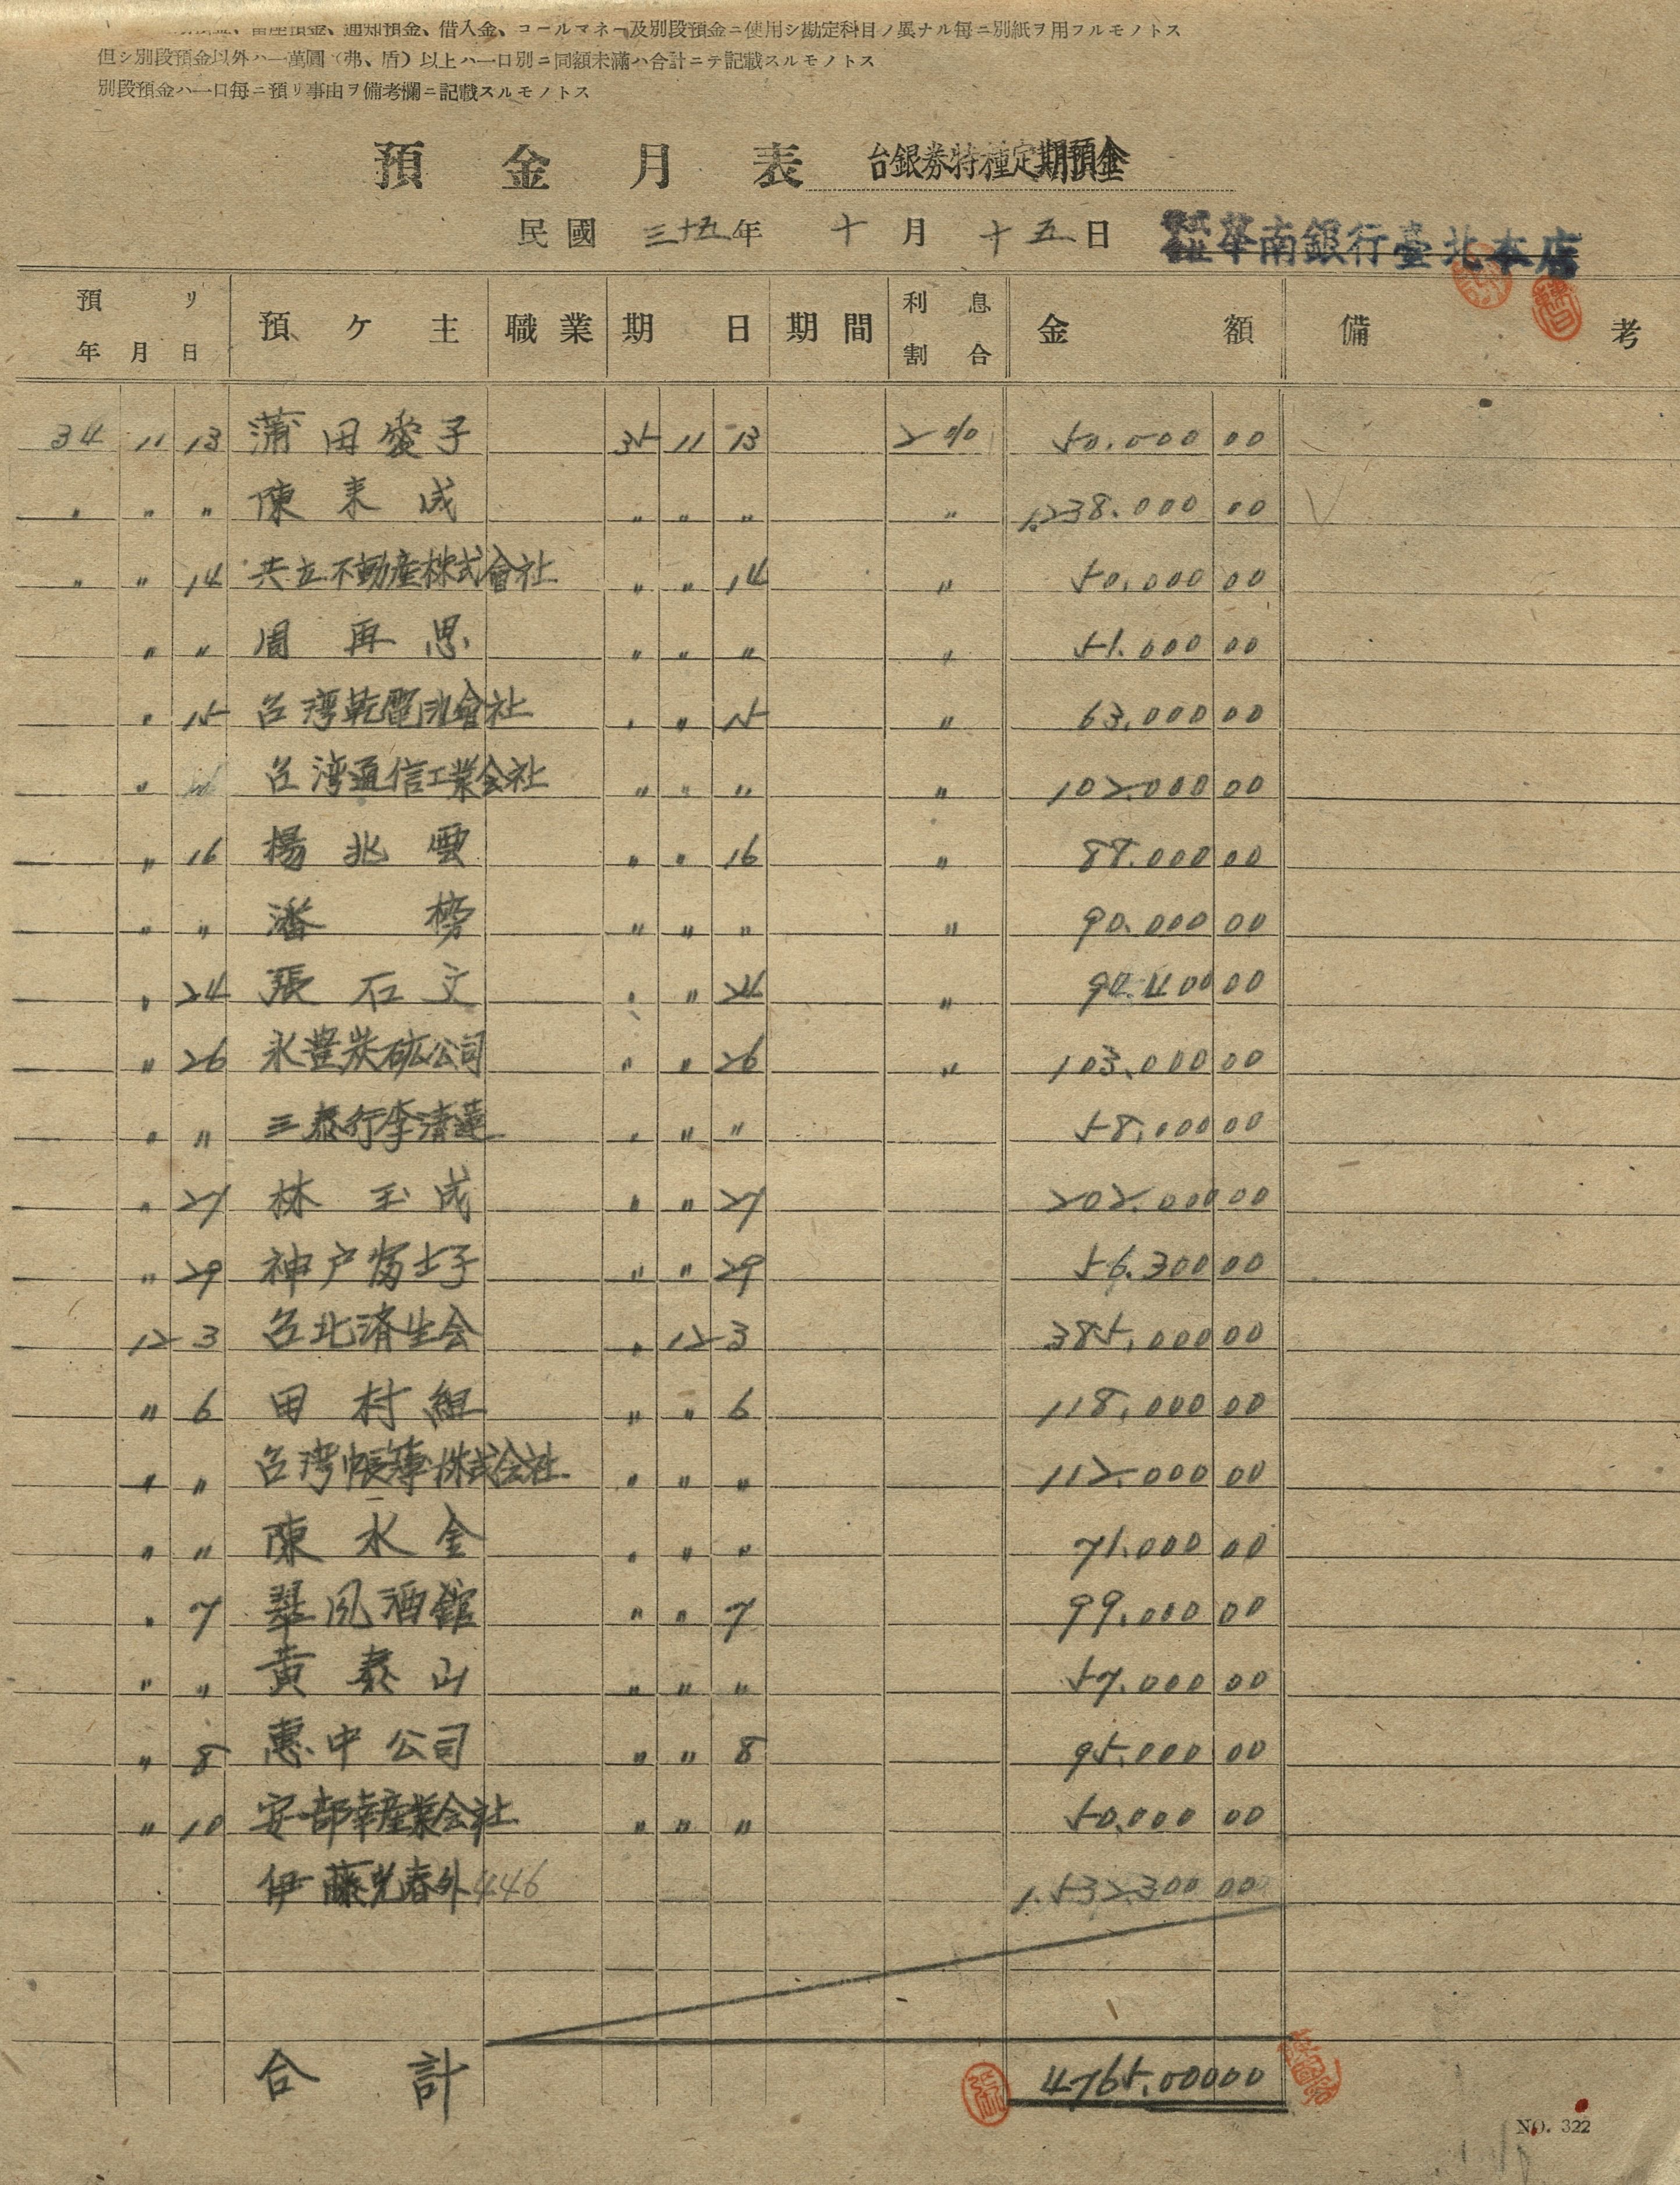 座預金、通知預金、借入金、コールマネー及別段預金ニ使用シ勘定科目ノ異ナル毎ニ別紙ヲ用フルモノトス
但シ別段預金以外ハ一萬圓(弗、盾)以上ハ一口別ニ同額未滿ハ合計ニテ記載スルモノトス
別段預金ハ一口毎ニ預リ事由ヲ備考欄ニ記載スルモノトス
預金月表 台銀券特種定期預金
民國 三十五年 十月 十五日 株式會社華南銀行臺北本店
預リ年月日 預ケ主 職業 期日 期間 利息割合 金額 備考
34 11 13 蒲田愛子 35 11 13 2% 50.000 00
〃 〃 〃 陳来成 〃 〃 〃 〃 1.238.000 00
〃 〃 14 共立不動産株式會社 〃 〃 14 〃 50.000 00
〃 〃 周再思 〃 〃 〃 〃 51.000 00
〃 15 台湾乾電池會社 〃 〃 15 〃 63.000 00
〃 台湾通信工業会社 〃 〃 〃 〃 102.000 00
〃 16 楊兆雲 〃 〃 16 〃 88.000 00
〃 〃 潘榜 〃 〃 〃 〃 90.000 00
〃 24 張石文 〃 〃 24 〃 94.400 00
〃 26 永豊炭砿公司 〃 〃 26 〃 103.000 00
〃 〃 三泰行李清蓮 〃 〃 〃 58.000 00
〃 27 林玉成 〃 〃 27 202.000 00
〃 29 神户富士子 〃 〃 29 56.300 00
12 3 台北済生会 〃 12 3 385.000 00
〃 6 田村組 〃 〃 6 118.000 00
〃 〃 台湾帳簿株式会社 〃 〃 〃 112.000 00
〃 〃 陳水金 〃 〃 〃 71.000 00
〃 7 翠風酒館 〃 〃 7 99.000 00
〃 〃 黄泰山 〃 〃 〃 57.000 00
〃 8 惠中公司 〃 〃 8 95.000 00
〃 10 安部幸産業会社 〃 〃 〃 50.000 00
伊藤光春外446 1.532.300 00
合計 4765.000 00
NO. 322